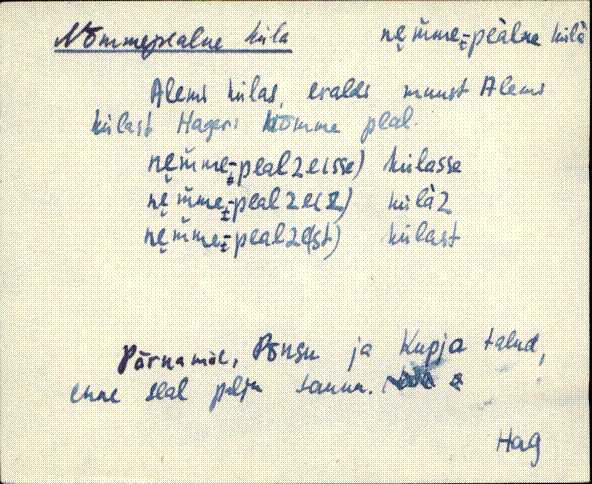 Nõmmepealne küla nè̮m̆me-pèàlne külà
Alema külas, eraldi muust Alema
külast Hageri Nõmme peal.
nè̮m̆me-pealze(sse) külasse
nè̮m̆me-pealze(z) külàz
nè̮m̆me-pealze(st) külast
Pärnamäe, Põngu ja Kupja talud,
enne seal palju
Hag